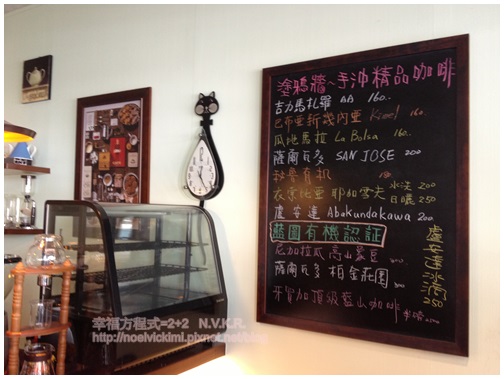 塗鴉牆~手沖精品咖啡
吉力馬札羅 AA 160..
巴布亞新幾內亞 Kimel 160..
瓜地馬拉 La Bolsa 160..
薩爾瓦多 SAN JOSE 200
秘魯有機 180
衣索比亞 耶加雪夫 水洗 200
日曬 250
盧安達 Abakundakawa 200
藍圖有機認証
尼加拉瓜 高山
薩爾瓦多 柏金莊園
牙買加頂級藍山咖啡
盧安達冰滴 250
幸福方程式=2+2 N.V.K.R.
http://noelvickimi.pixnet.net/blog